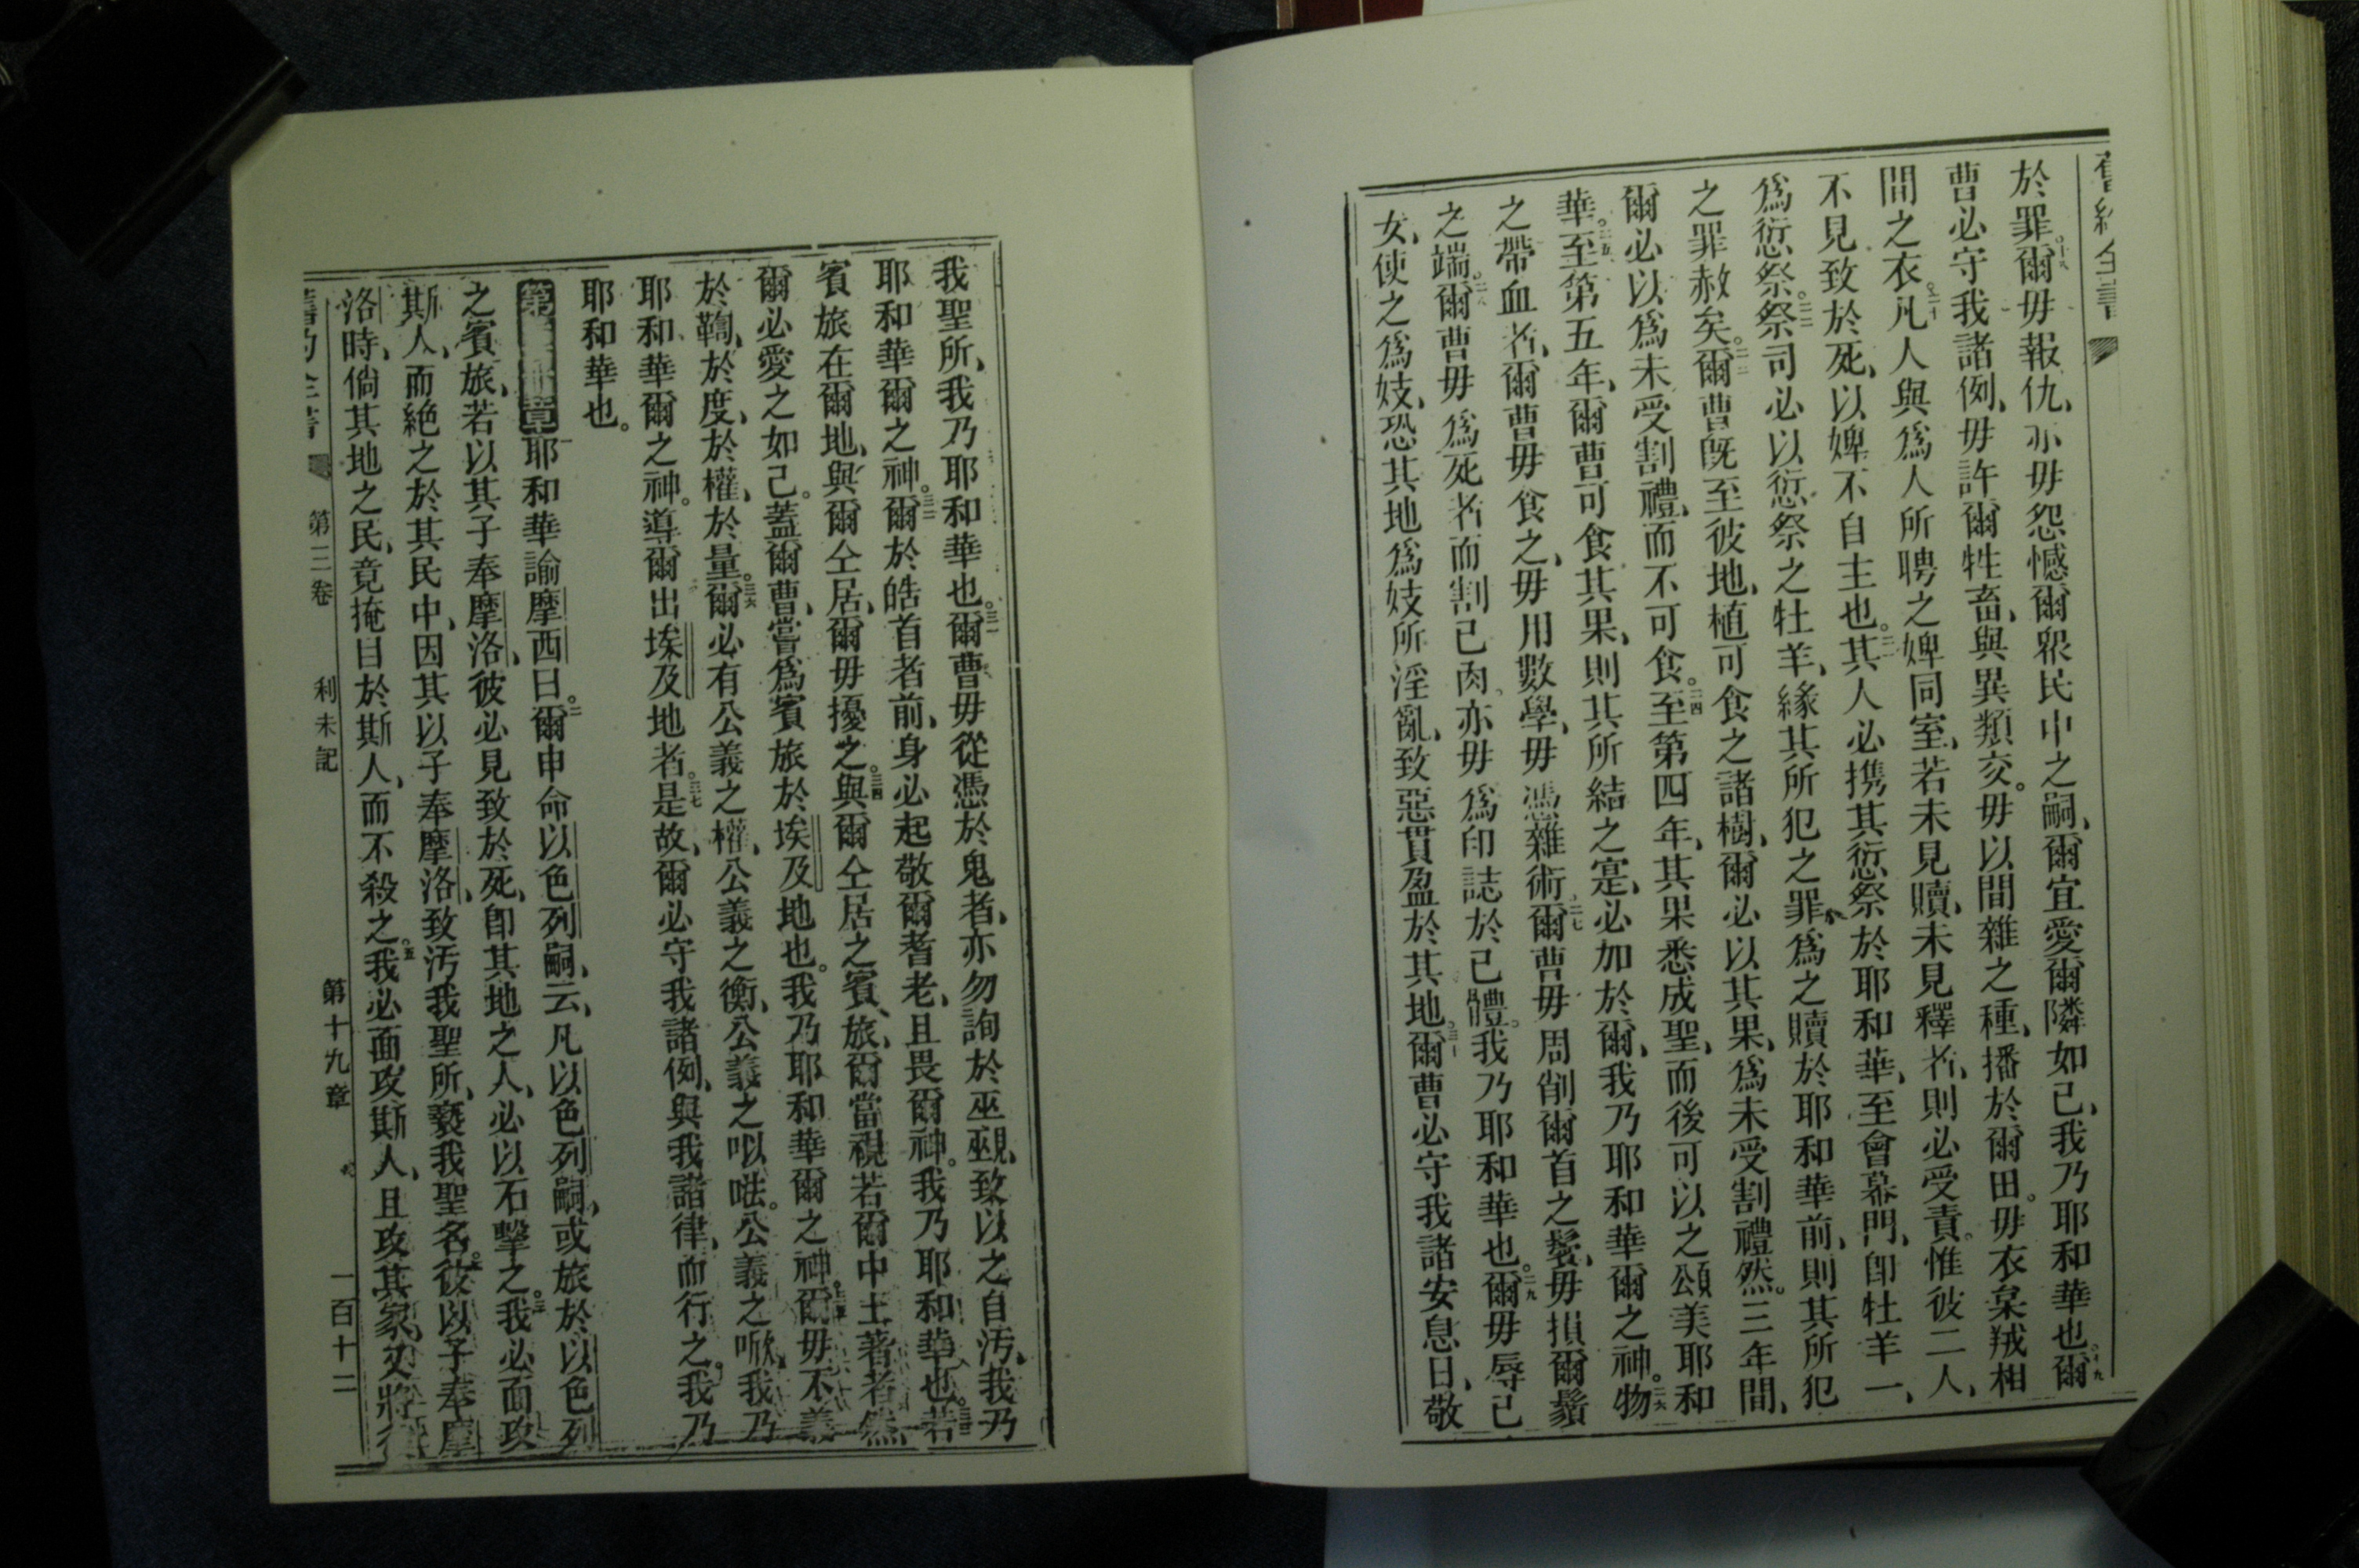 舊約全書
於罪。十八爾毋報仇、亦毋怨憾爾眾民中之嗣、爾宜愛爾隣如己、我乃耶和華也。十九爾
曹必守我諸例、毋許爾牲畜、與異類交。毋以間雜之種、播於爾田。毋衣枲羢相
間之衣。二十凡人與為人所聘之婢同室、若未見贖、未見釋者、則必受責。惟彼二人、
不見致於死、以婢不自主也。二一其人必携其愆祭於耶和華、至會幕門、卽牡羊一、
為愆祭。二二祭司必以愆祭之牡羊、緣其所犯之罪、為之贖於耶和華前、則其所犯
之罪赦矣。二三爾曹既至彼地、植可食之諸樹、爾必以其果、為未受割禮然。三年間、
爾必以為未受割禮、而不可食。二四至第四年、其果悉成聖、而後可以之頌美耶和
華。二五至第五年、爾曹可食其果、則其所結之寔、必加於爾、我乃耶和華爾之神。二六物
之帶血者、爾曹毋食之、毋用數學、毋憑雜術。二七爾曹毋周削爾首之鬢、毋損爾鬚
之端。二八爾曹毋為死者而割己肉。亦毋為印誌於己體。我乃耶和華也。二九爾毋辱己
女、使之為妓、恐其地為妓所淫亂、致惡貫盈於其地。三十爾曹必守我諸安息日、敬
我聖所、我乃耶和華也。三一爾曹毋從憑於鬼者、亦勿詢於巫覡、致以之自汚、我乃
耶和華爾之神。三二爾於皓首者前、身必起敬爾耆老、且畏爾神。我乃耶和華也。三三若
賓旅在爾地、與爾仝居、爾毋擾之。三四與爾仝居之賓旅、爾當視若爾中土著者然、
爾必愛之如己。蓋爾曹、嘗為賓旅於埃及地也。我乃耶和華爾之神。三五爾毋不義
於鞫、於度、於權、於量。三六爾必有公義之權、公義之衡、公義之㕥㗀。公義之㗁、我乃
耶和華爾之神。導爾出埃及地者。三七是故、爾必守我諸例、與我諸律、而行之。我乃
耶和華也。
第二十章一耶和華諭摩西曰。二爾申命以色列嗣、云、凡以色列嗣、或旅於以色列
之賓旅、若以其子奉摩洛、彼必見致於死、卽其地之人、必以石擊之。三我必面攻
斯人、而絕之於其民中、因其以子奉摩洛、致汚我聖所、褻我聖名。四彼以子奉摩
洛時、倘其地之民、竟掩目於斯人、而不殺之。五我必面攻斯人、且攻其家、又將
舊約全書 第三卷 利未記 第十九章 一百十二